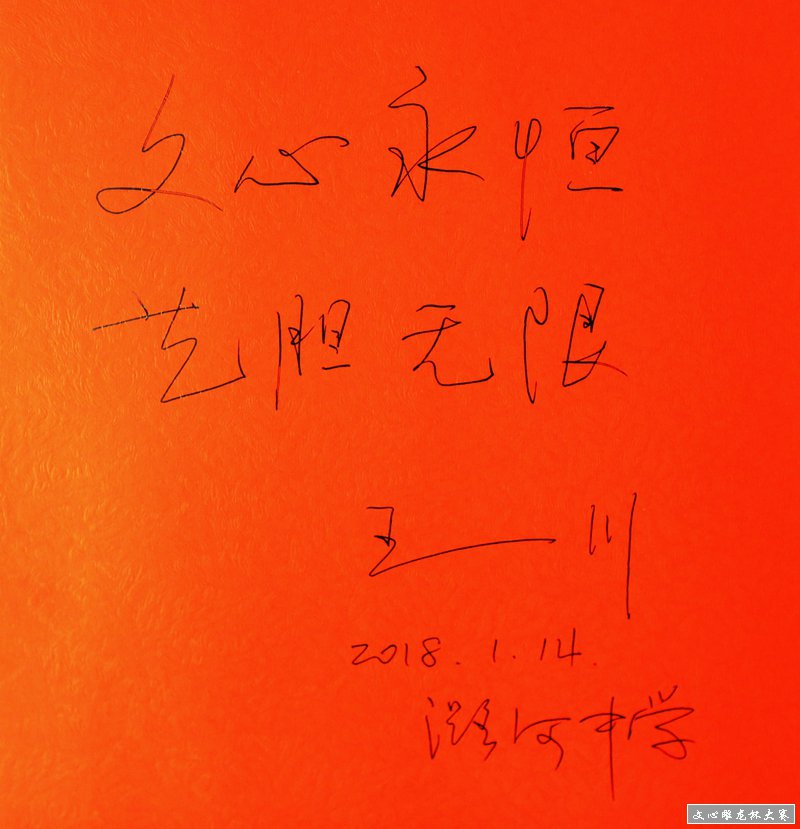 文心永恒
艺胆无限
王川
2018.1.14.
潞河中学
文心雕龙杯大赛